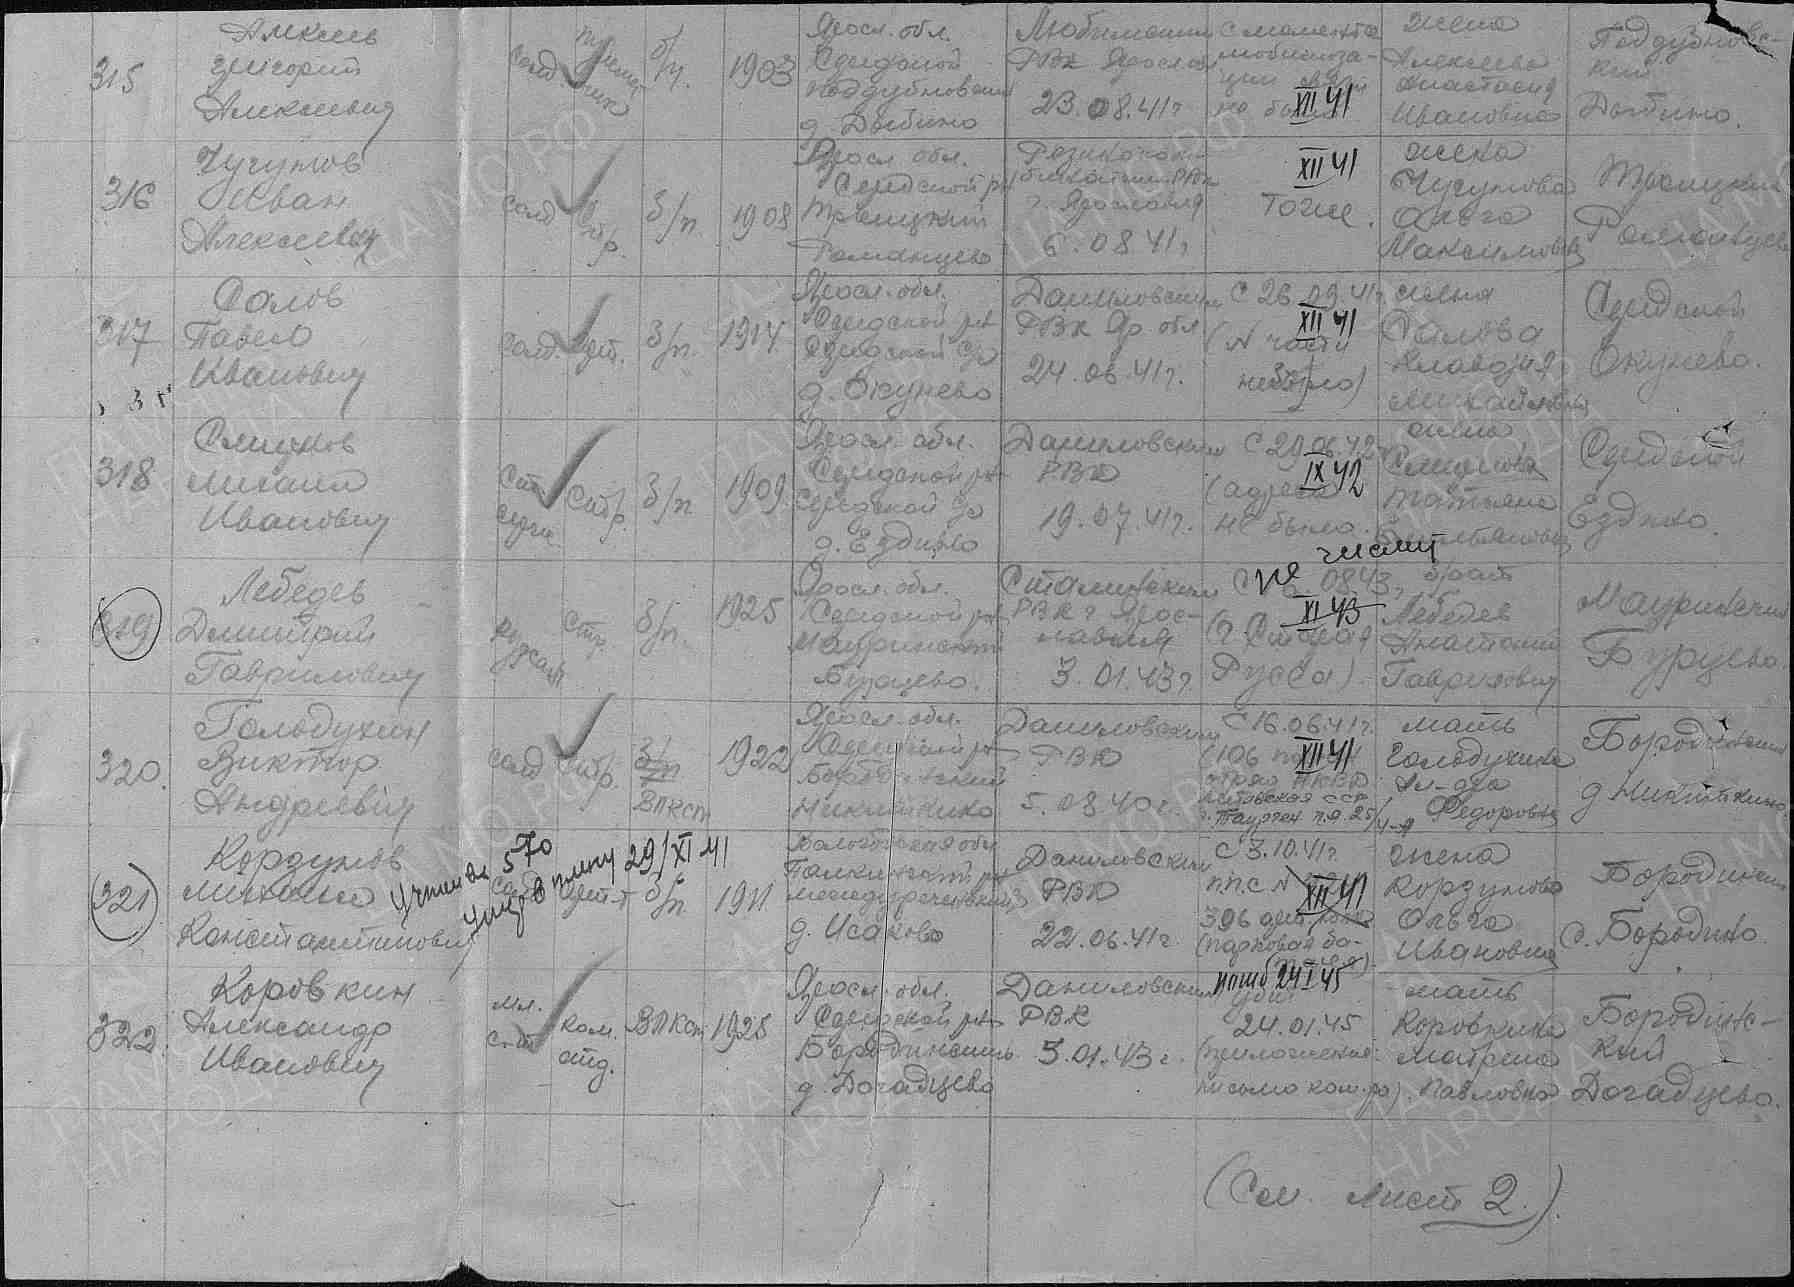 315
Григорий
Алексеевич
солд.
б/п.
1903
Яросл. обл.
Середской
Поддубновский
д. Дыбино
Любимский
РВК Яросл. обл.
23.08.41г.
с момента
мобилиза-
ции
не было
XII 41
жена
Алексеева
Анастасия
Ивановна
Поддубновс-
кий
Дыбино.
316
Чугунов
Иван
Алексеевич
солд
стр.
б/п.
1908
Яросл. обл.
Середской р-н
Троицкий
Романцево
РВК
г. Ярославля
6.08.41г.
XII 41
тоже.
жена
Чугунова
Ольга
Максимовна
Троицкий
Романцево
317
Павел
Иванович
солд.
б/п.
1914
Яросл. обл.
Середской р-н
Середской с/с
д. Окунево
Даниловский
РВК Яр. обл.
24.06.41г.
с 26.09.41г.
XII 41
(N части
не было)
жена
Клавдия
Михайловна
Середской
Окунево.
318
Смирнов
Михаил
Иванович
стр.
б/п
1909
Яросл. обл.
Середской р-н
Середской с/с
д. Ездино
Даниловский
РВК
19.07.41г.
IX 42
(адреса
не было.
жена
Смирнова
Татьяна
Середской
Ездино.
не числит
319
Лебедев
Дмитрий
Гаврилович
стр.
б/п.
1925
Яросл. обл.
Середской р-н
Мауринский
Бурцево.
Сталинский
РВК г. Ярос-
лавля
3.01.43г.
08.43,
XI 43
(г. Старая
Русса).
брат
Лебедев
Анатолий
Гаврилович
Мауринский
Бурцево.
320.
Голодухин
Виктор
Андреевич
солд
стр.
б/п
ВЛКСМ
1922
Яросл. обл.
Середской р-н
Бородинский
Никиткино
Даниловский
РВК
5.08.40г.
с 16.06.41г.
(106
XII 41
отряд НКВД
Литовская ССР
г. Таураген п.я. 25/4-А
мать
Голодухина
Ал-дра
Федоровна
Бородинский
д. Никиткино
321
Кордунов
Михаил
Константинович
Учтен вх 570
умер в плену 29/XI 41
б/п
1911
Вологодская обл
Междуреченский
д. Исаково
Даниловский
РВК
22.06.41г.
с 3.10.41г.
ппс N
XII 41
396
жена
Кордунова
Ольга
Ивановна
Бородинский
д. Бородино
322.
Коровкин
Александр
Иванович
мл.
с-нт
ком.
отд.
ВЛКСМ
1925
Яросл. обл.
Середской р-н
Бородинский
д. Догадцево
Даниловский
РВК
3.01.43г.
погиб 24 I 45
убит
24.01.45
(приложение:
письмо ком-ра).
мать
Коровкина
Матрена
Павловна
Бородинс-
кий
Догадцево.
(См. лист 2.).